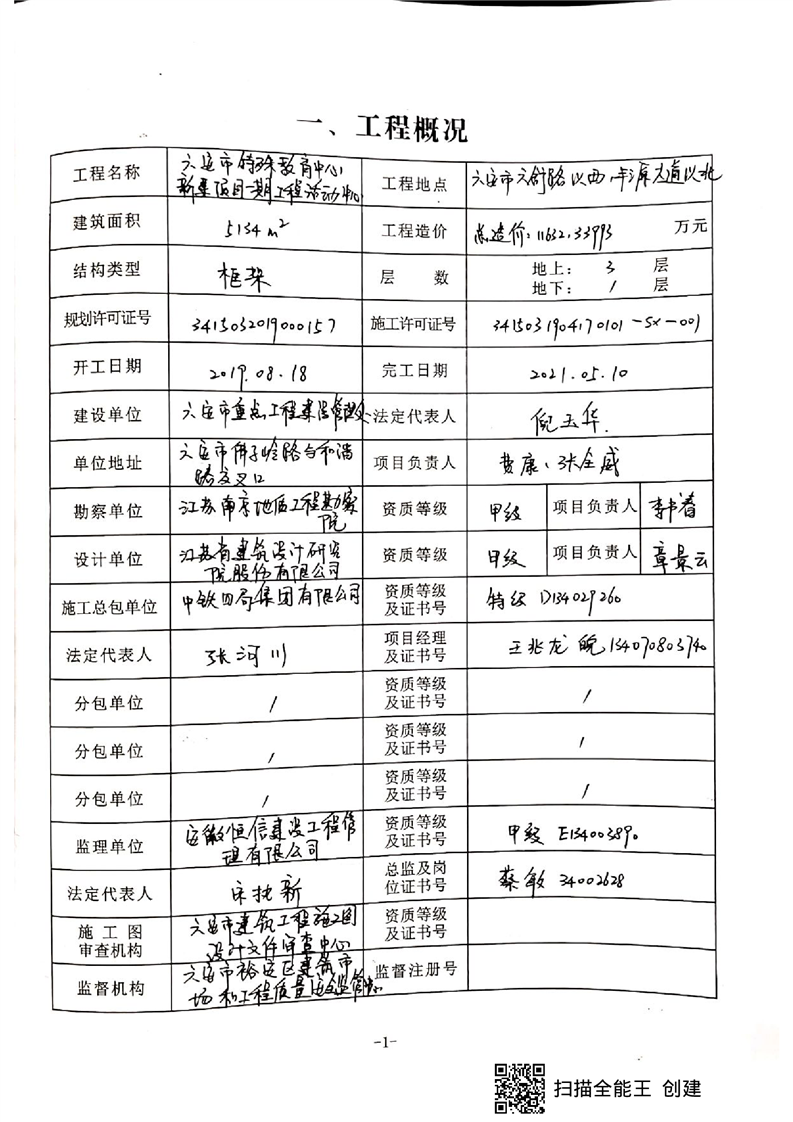 一、工程概况
工程名称 六安市特殊教育中心新建项目一期工程活动中心 工程地点 六安市六舒路以西
建筑面积 5134m² 工程造价 总造价:11632.33993 万元
结构类型 框架 层 数 地上: 3 层
地下: 1 层
规划许可证号 3415032019000157 施工许可证号 3415031904170101-SX-001
开工日期 2019.08.18 完工日期 2021.05.10
建设单位 六安市重点工程建设管理处 法定代表人 倪玉华
单位地址 六安市佛子岭路与和谐路交叉口 项目负责人 费康、张全威
勘察单位 江苏南京地质工程勘察院 资质等级 甲级 项目负责人 李书春
设计单位 江苏省建筑设计研究院股份有限公司 资质等级 甲级 项目负责人 章景云
施工总包单位 中铁四局集团有限公司 资质等级及证书号 特级 D134029260
法定代表人 张河川 项目经理及证书号 王兆龙 皖134070803740
分包单位 / 资质等级及证书号 /
分包单位 / 资质等级及证书号 /
分包单位 / 资质等级及证书号 /
监理单位 安徽恒信建设工程管理有限公司 资质等级及证书号 甲级 E134003890
法定代表人 新 总监及岗位证书号 蔡敏 34002628
施工图审查机构 六安市建筑工程施工图设计文件审查中心 资质等级及证书号
监督机构 六安市裕安区建筑市场和工程质量安全监管 监督注册号
-1-
扫描全能王 创建